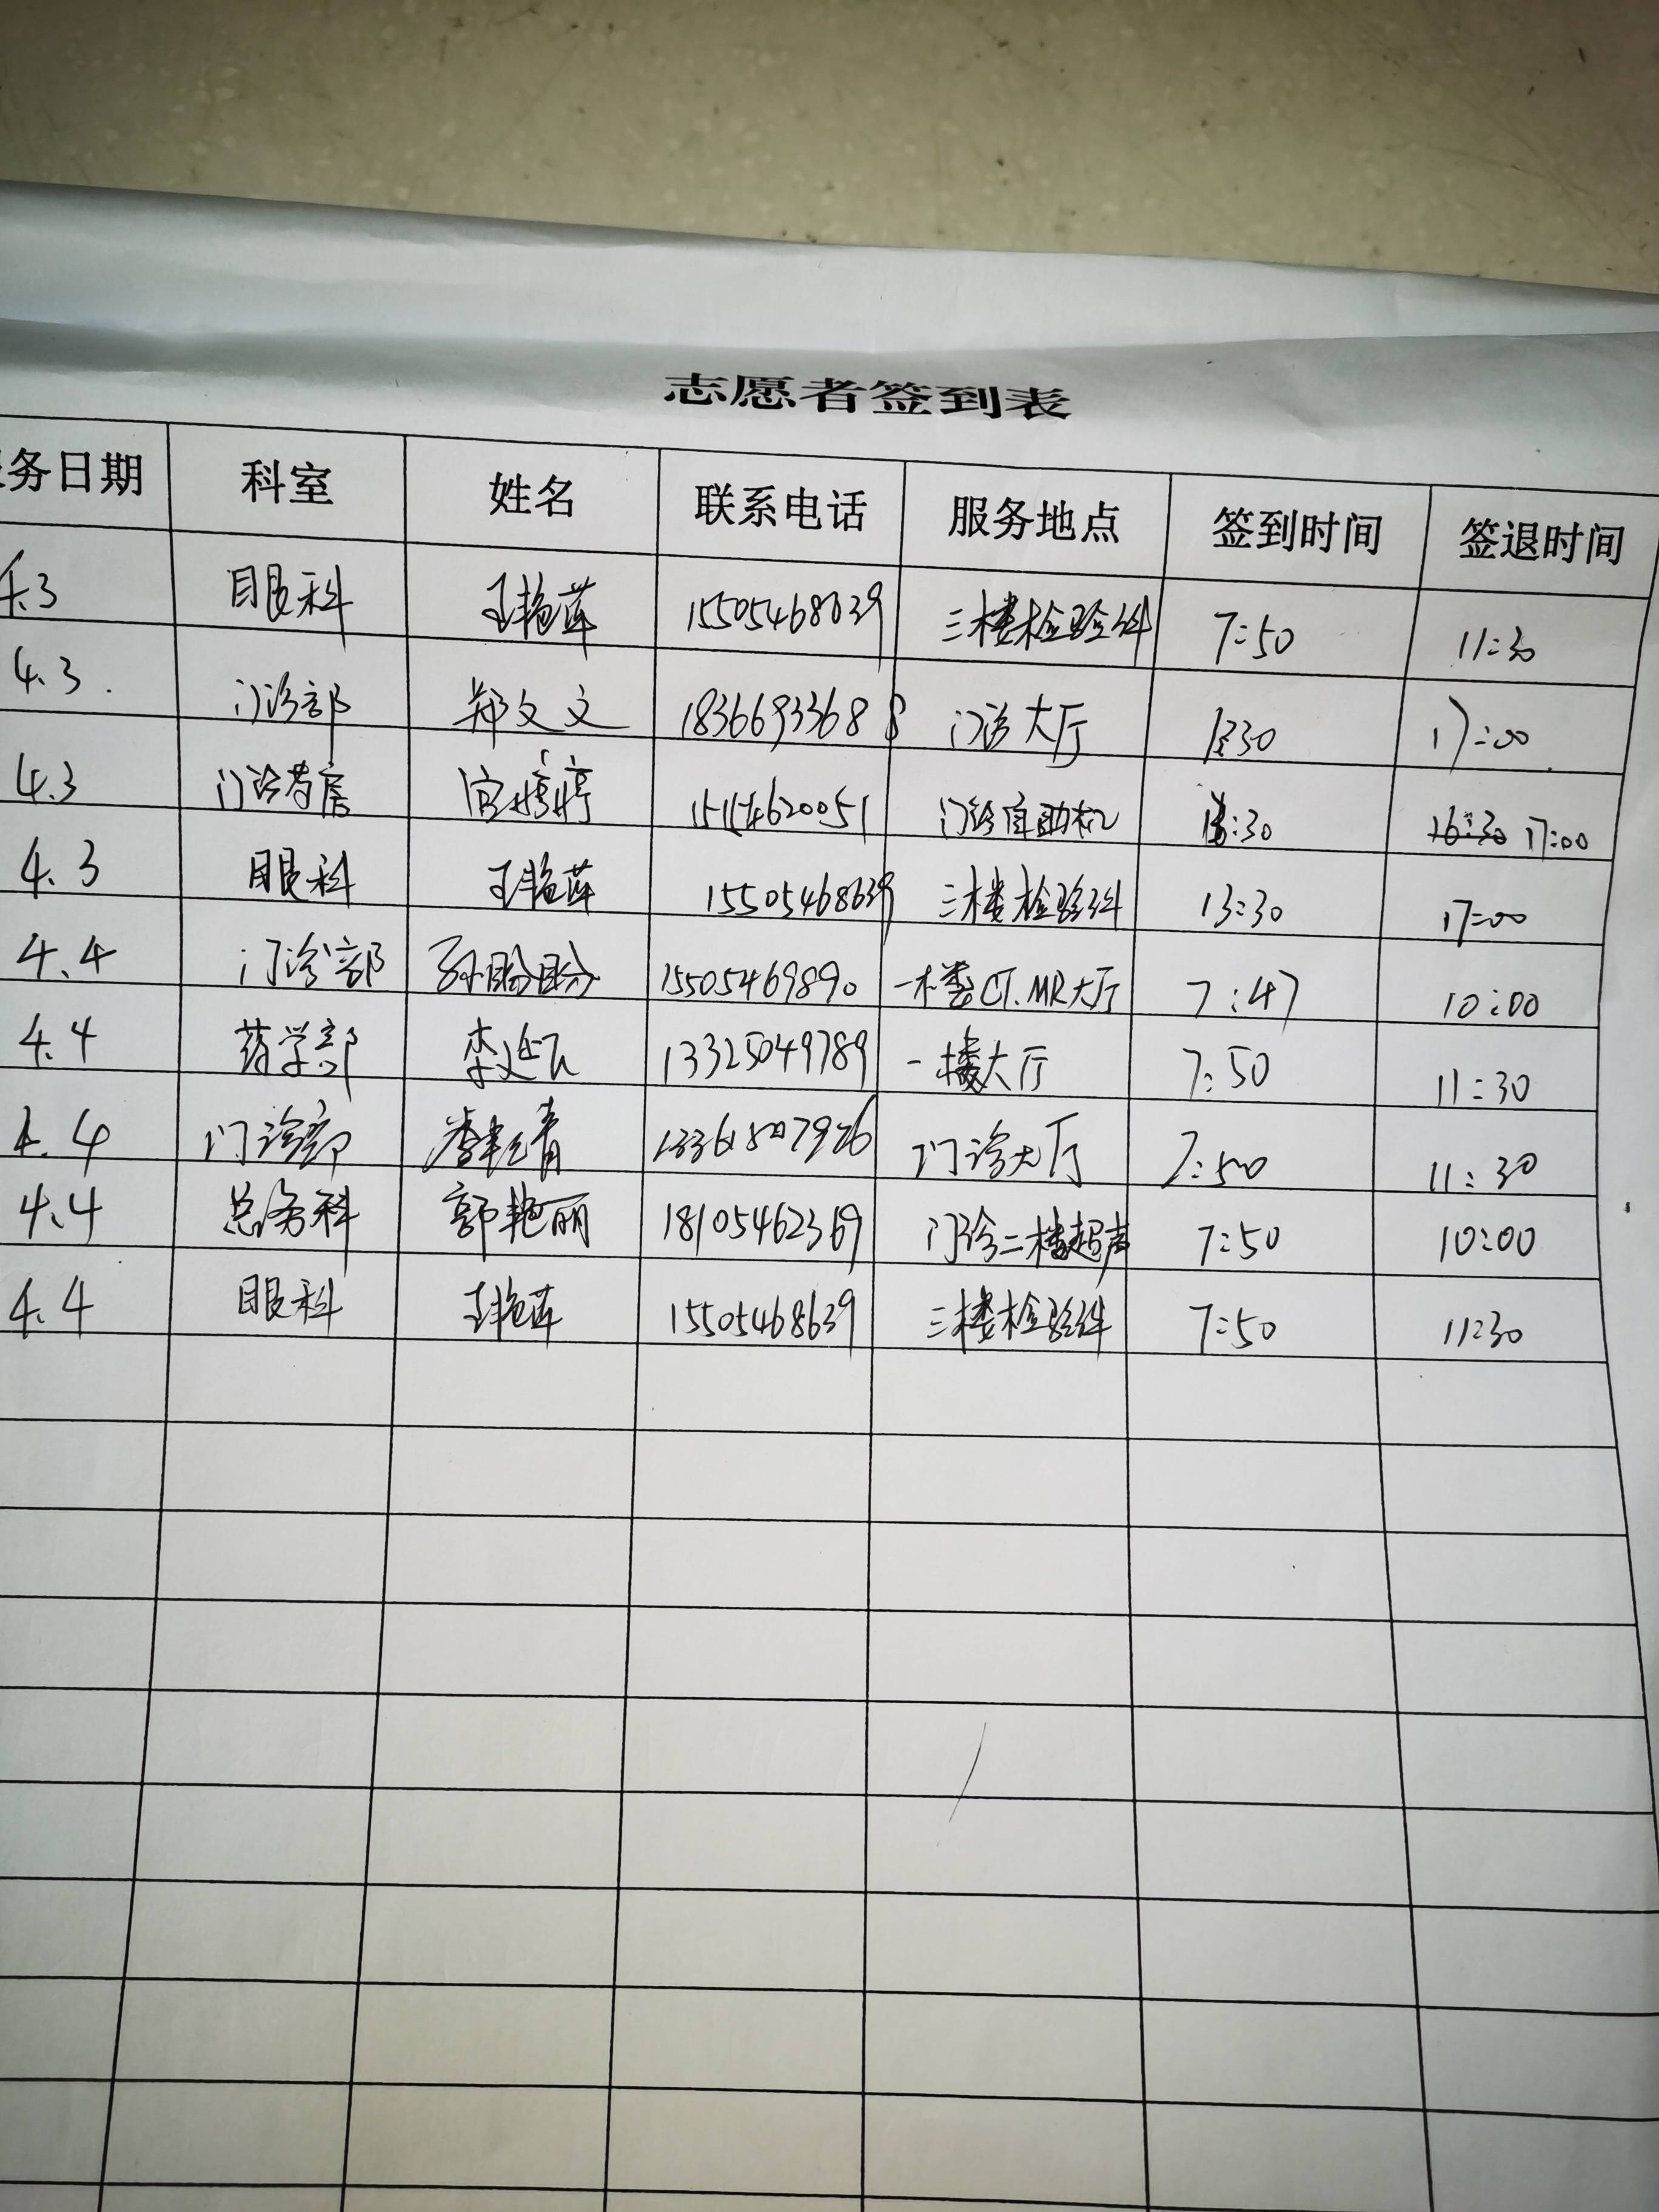 志愿者签到表
务日期 科室 姓名 联系电话 服务地点 签到时间 签退时间
4.3 眼科 王艳萍 15505468639 三楼检验科 7:50 11:30
4.3. 门诊部 郑文文 18366933688 门诊大厅 17:00
4.3 门诊药房 婷婷 门诊自助机 :30 16:30 17:00
4.3 眼科 王艳萍 15505468639 三楼检验科 13:30 17:00
4.4 门诊部 孙盼盼 15505469890 一楼CT.MR大厅 7:47 10:00
4.4 药学部 李延飞 13325049789 一楼大厅 7:50 11:30
4.4 门诊部 青 门诊大厅 7:50 11:30
4.4 总务科 郭艳丽 18105462369 门诊二楼超声 7:50 10:00
4.4 眼科 王艳萍 15505468639 三楼检验科 7:50 11:30